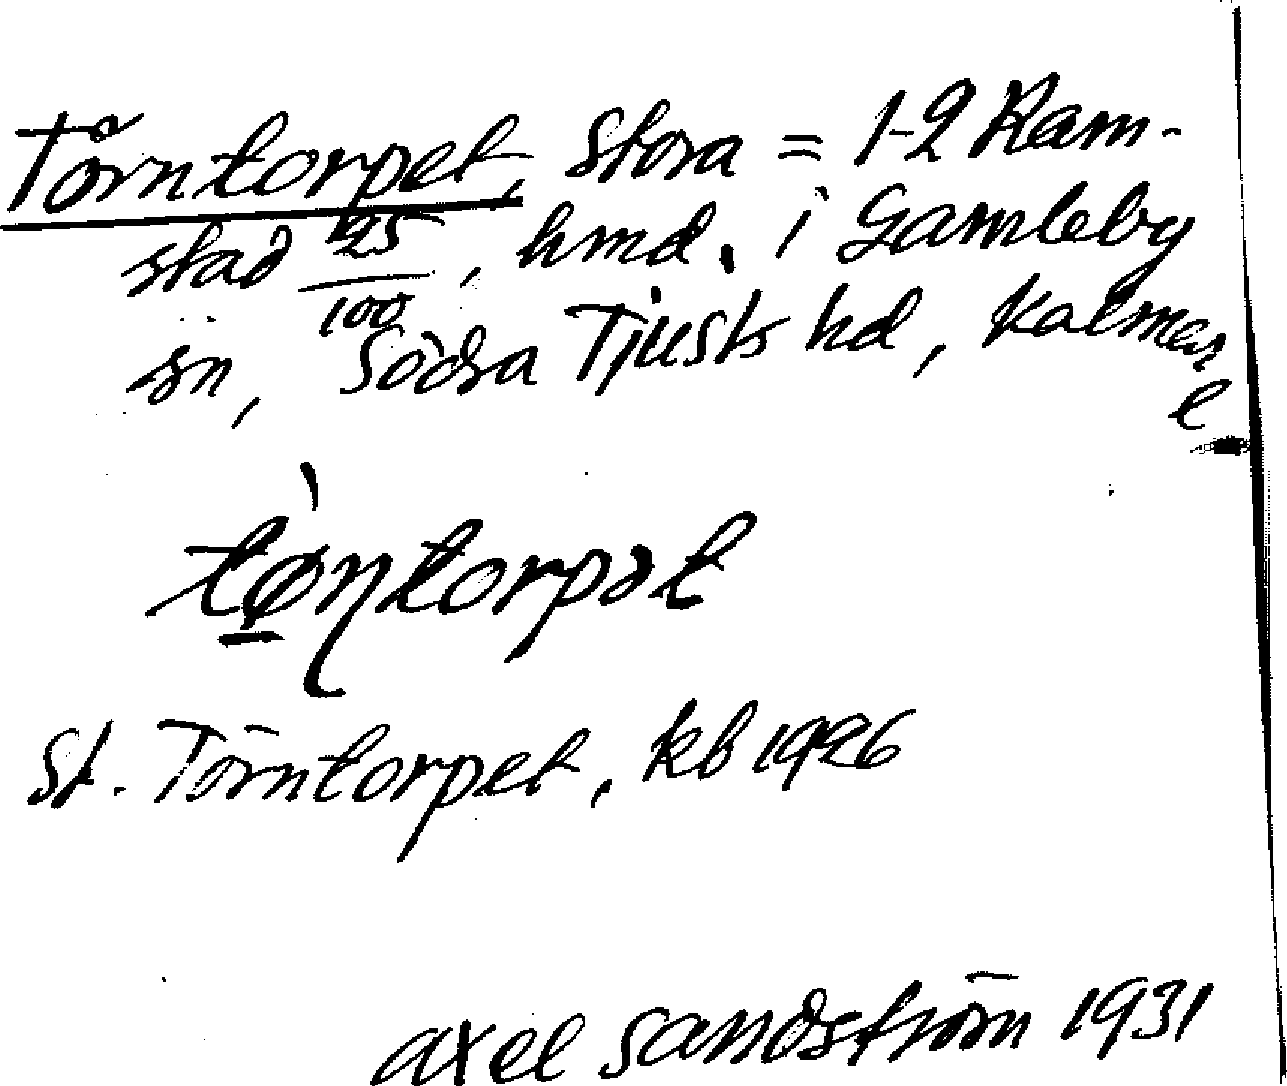 Törntorpet, Stora = 1-2 Ram-
stad 125/100, hmd. i Gamleby
sn, Södra Tjusts hd, Kalmar
l
tøntorpət
St. Törntorpet, kb 1926
Axel Sandström 1931